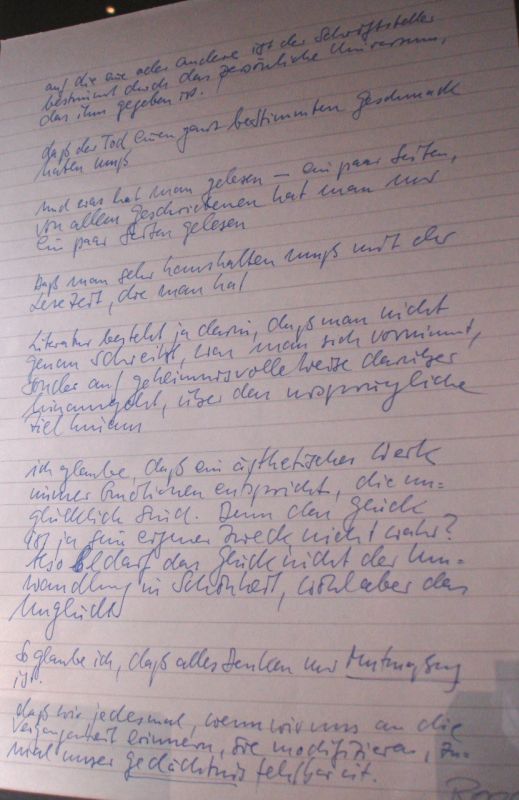 auf die eine oder andere ist der Schriftsteller
bestimmt durch das persönliche Universum,
das ihm gegeben ist.
daß der Tod einen ganz bestimmten Geschmack
haben muß
und was hat man gelesen – ein paar Seiten,
von allem Geschriebenen hat man nur
ein paar Seiten gelesen
Daß man sehr haushalten muß mit der
Lesezeit, die man hat
Literatur besteht ja darin, daß man nicht
genau schreibt, was man sich vornimmt,
sonder auf geheimnisvolle Weise darüber
hinausgeht, über das ursprüngliche
Ziel hinaus
ich glaube, daß ein ästhetisches Werk
immer Emotionen entspricht, die un-
glücklich sind. Denn das Glück
ist ja sein eigener Zweck nicht wahr?
Also bedarf das Glück nicht der Um-
wandlung in Schönheit, wohl aber das
Unglück
So glaube ich, daß alles Denken nur Mutmaßung
ist.
daß wir jedesmal, wenn wir uns an die
Vergangenheit erinnern, sie modifizieren, zu-
mal unser Gedächtnis fehlbar ist.